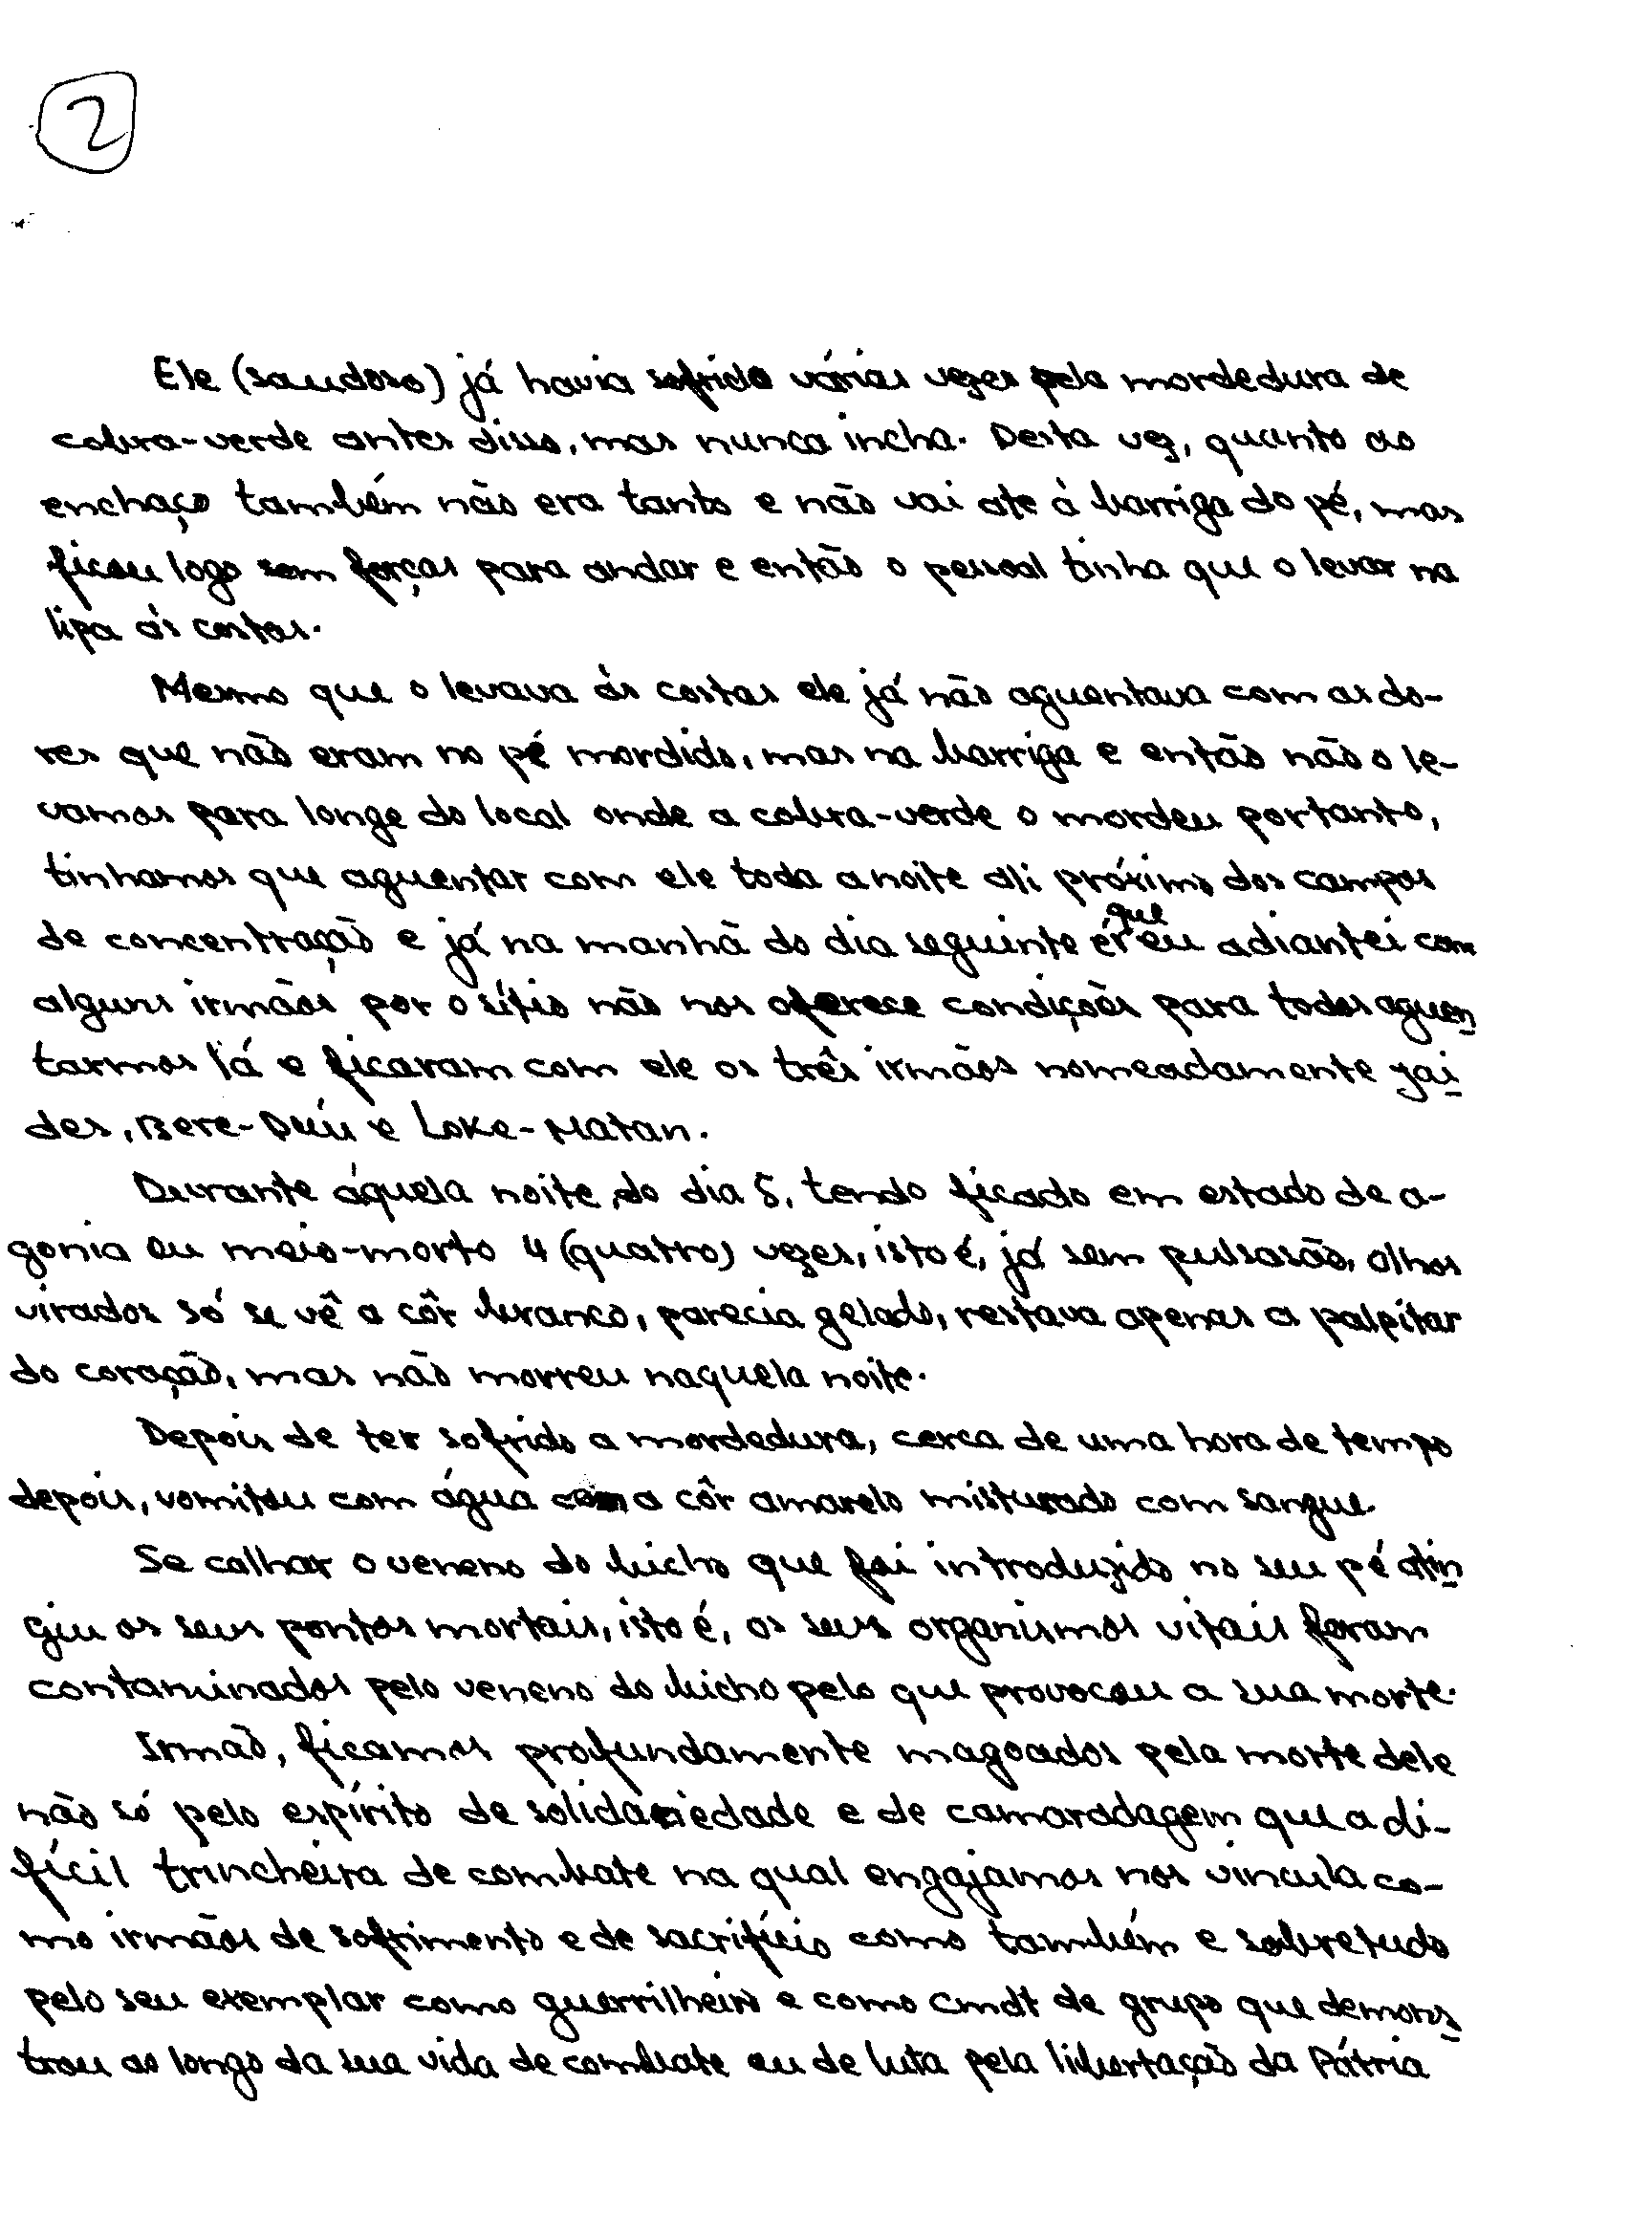 2
Ele (saudoso) já havia sofrido várias vezes pela mordedura de
cobra-verde antes disso, mas nunca incha. Desta vez, quanto ao
enchaço também não era tanto e não vai ate à barriga do pé, mas
ficou logo sem forças para andar e então o pessoal tinha que o levar na
lipa ás costas.
Mesmo que o levava ás costas ele já não aguentava com as do-
res que não eram no pé mordido, mas na barriga e então não o le-
vamos para longe do local onde a cobra-verde o mordeu portanto,
tinhamos que aguentar com ele toda a noite ali próximo dos campos
de concentração e já na manhã do dia seguinte é que eu adiantei com
alguns irmãos por o sítio não nos oferece condições para todos aguen
tarmos lá e ficaram com ele os três irmãos nomeadamente Jai
des, Bere-Duú e Loke-Matan.
Durante áquela noite, do dia 5, tendo ficado em estado de a-
gonia ou meio-morto 4 (quatro) vezes, isto é, já sem pulsasão, olhos
virados só se vê a côr branco, parecia gelado, restava apenas a palpitar
do coração, mas não morreu naquela noite.
Depois de ter sofrido a mordedura, cerca de uma hora de tempo
depois, vomitou com água com a côr amarelo misturado com sangue.
Se calhar o veneno do bicho que foi introduzido no seu pé atin
giu os seus pontos mortais, isto é, os seus organismos vitais foram
contaminados pelo veneno do bicho pelo que provocou a sua morte.
Irmão, ficamos profundamente magoados pela morte dele
não só pelo espírito de solidariedade e de camaradagem que a di-
fícil trincheira de combate na qual engajamos nos vincula co-
mo irmãos de sofrimento e de sacrifício como também e sobretudo
pelo seu exemplar como guerrilheiro e como Cmdt de grupo que demons
trou ao longo da sua vida de combate ou de luta pela libertação da Pátria